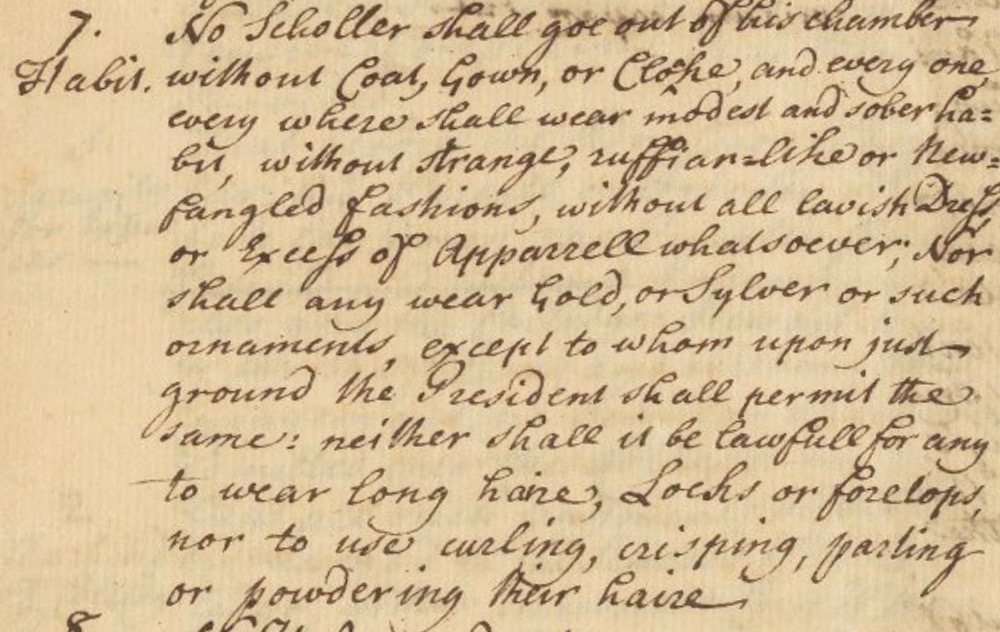 7. No Scholler shall goe out of his chamber
Habit. without Coat, Gown, or Cloke, and every one
every where shall wear modest and sober ha=
bit, without strange, ruffian=like or New=
fangled fashions, without all lavish Dress,
or Excess of Apparrell whatsoever; Nor
shall any wear Gold, or Sylver or such
ornaments, except to whom upon just
ground the President shall permit the
same: neither shall it be lawfull for any
to wear long haire, Locks or foretops,
nor to use curling, crisping, parting
or powdering their haire
8.